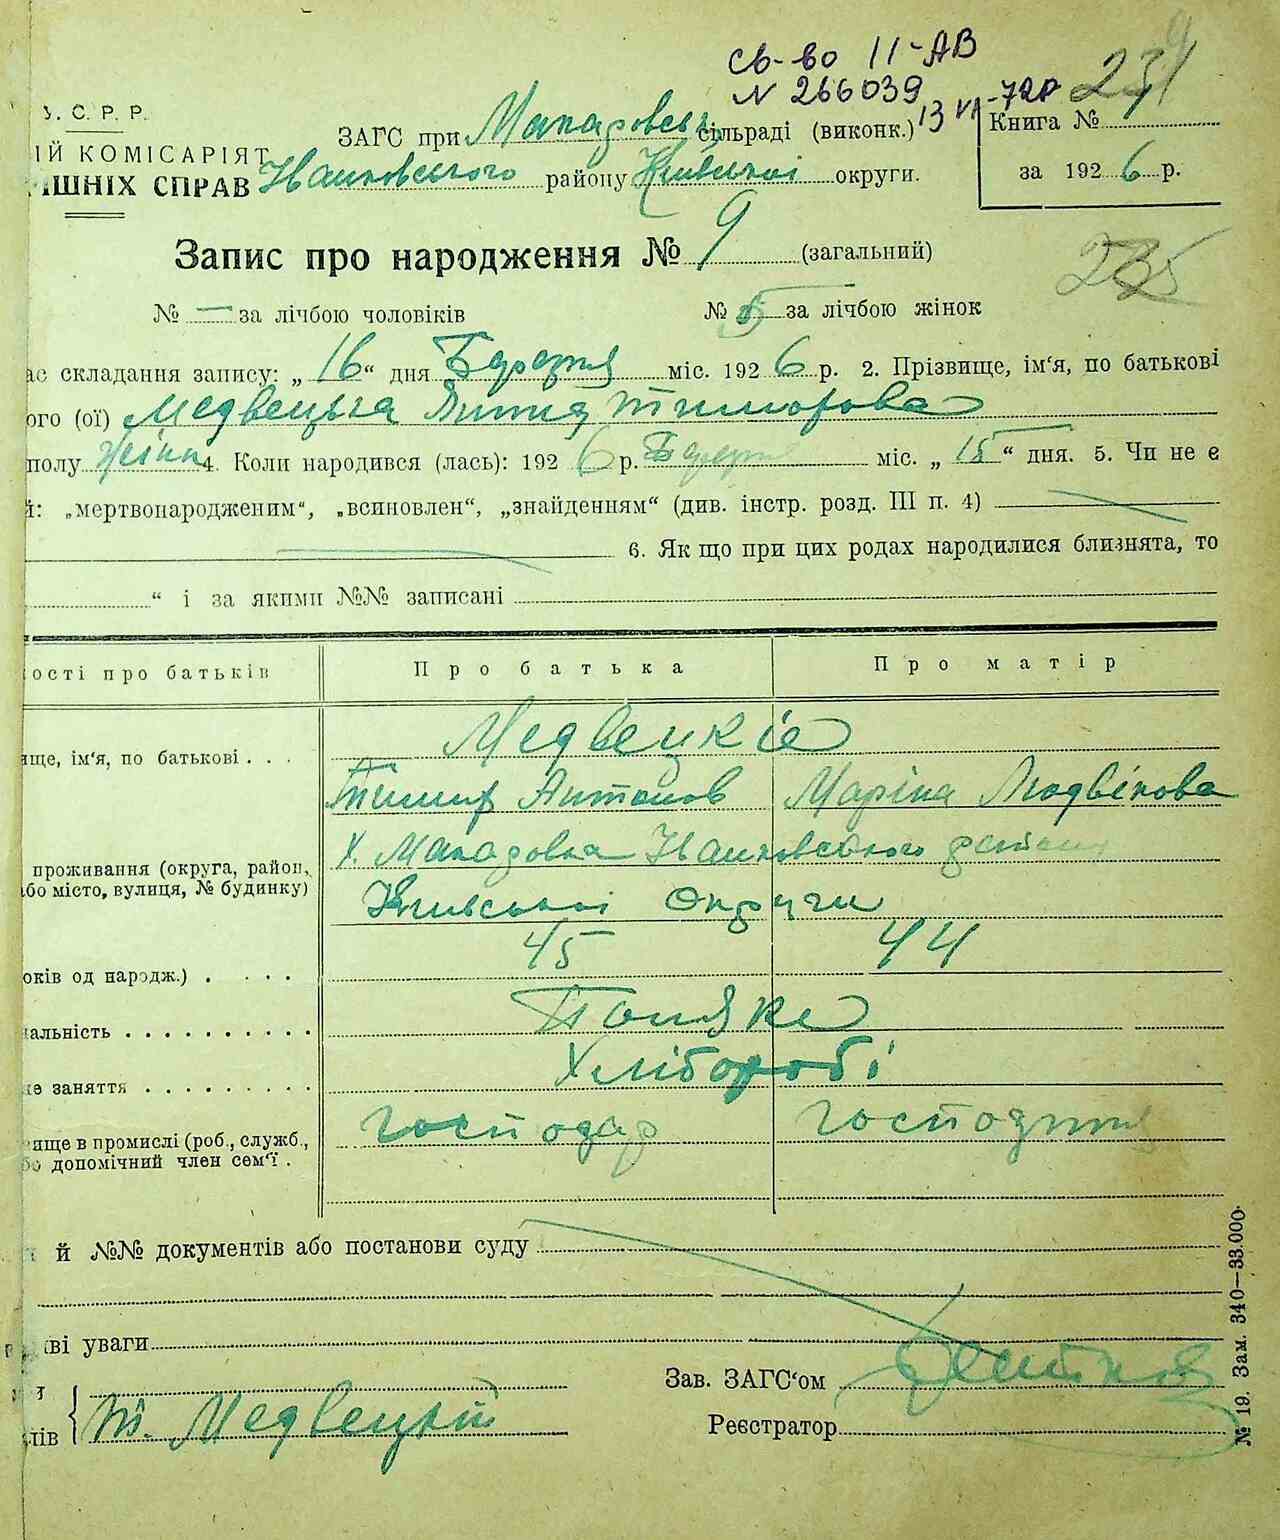 св-во II-АВ
N 266039 13 VI-72р 231
У. С. Р. Р.
ЗАГС при Макаровськ сільраді (виконк.) Книга №
ІЙ КОМІСАРІЯТ
ІШНІХ СПРАВ Іванковського району Київської округи. за 1926 р.
Запис про народження № 9 (загальний)
235
№ — за лічбою чоловіків № 5 за лічбою жінок
ас складання запису: „16“ дня Березня міс. 1926 р. 2. Прізвище, ім‘я, по батькові
ого (ої) Медвецька Тимофова
полу Жіно 4. Коли народився (лась): 1926 р. Березня міс. „15“ дня. 5. Чи не є
й: „мертвонародженим“, „всиновлен“, „знайденням“ (див. інстр. розд. III п. 4)
6. Як що при цих родах народилися близнята, то
“ і за якими №№ записані
ості про батьків Про батька Про матір
ище, ім‘я, по батькові . . . Медвецкіе
Антонов Маріна Людвікова
проживання (округа, район, х. Макаровка Іванковського району
бо місто, вулиця, № будинку) Київської Округи
оків од народж.) . . . . 45 44
альність . . . . . . . . . . Поляке
не заняття . . . . . . . . . Хлібороби
ище в промислі (роб., служб., господар господиня
бо допомічний член сем‘ї .
й №№ документів або постанови суду
іві уваги
Зав. ЗАГС‘ом
лів Т. Медвецкій Реєстратор
№ 19. Зам. 340—33.000.